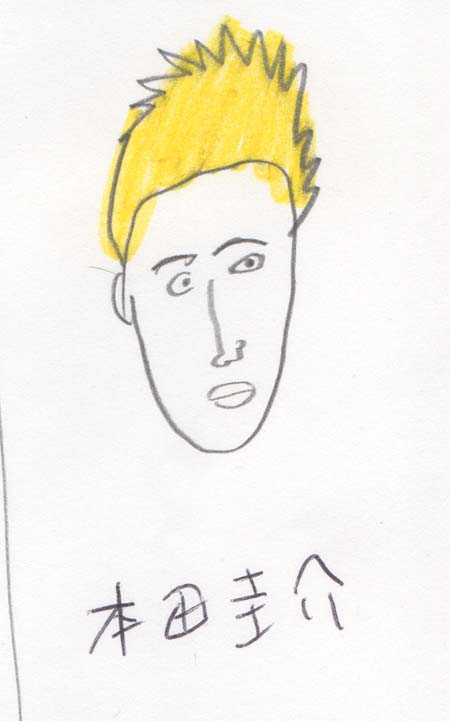 本田圭介